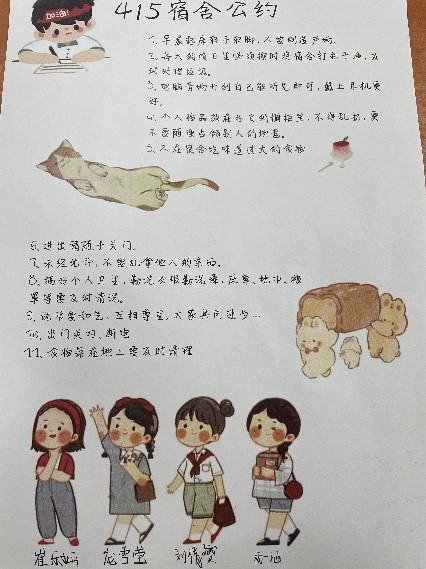 加油!
415宿舍公约
1. 早晨起床轻手轻脚,不要制造声响。
2. 每人到值日生必须按时将宿舍打扫干净,及
时处理垃圾。
3. 电脑音响开到自己能听见即可,戴上耳机更
好。
4. 个人物品放在各自的橱柜里,不得乱扔,更
不要随便占领别人的地盘。
5. 不在宿舍吃味道过大的食物
6. 进出请随手关门。
7. 未经允许,不要乱拿他人的东西。
8. 搞好个人卫生,勤洗衣服勤洗澡,床单、枕巾、被
罩等要及时清洗。
9. 保持宽和气,互相尊重,大家共同进步...
10. 出门关灯、断电
11. 食物落在地上要及时清理
龙雪莹